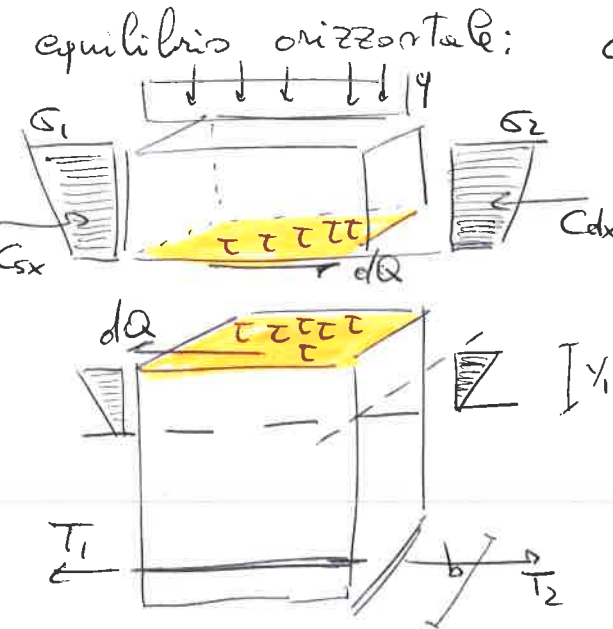 equilibrio orizzontale:
q
σ1
σ2
Csx
Cdx
τ τ τ τ τ
dQ
dQ
τ τ τ τ τ
τ
y1
T1
b
T2